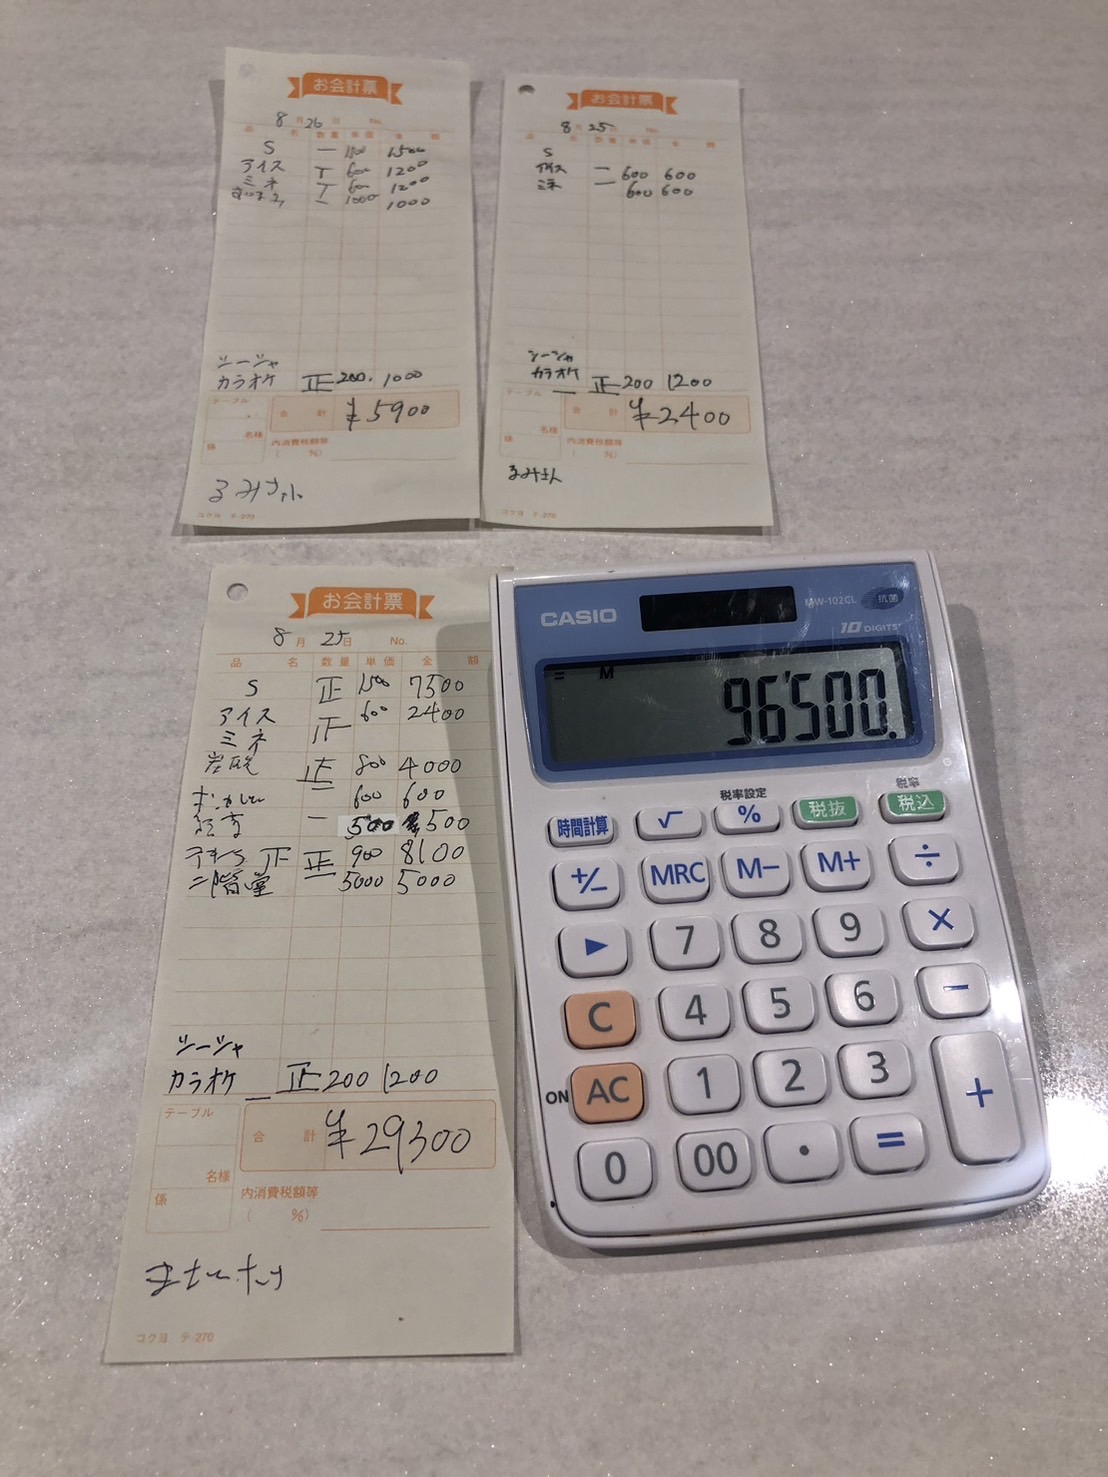 お会計票
8月26日 No.
品名 数量 単価 金額
S 一 1500 1500
アイス T 600 1200
ミネ T 600 1200
一 1000 1000
シーシャ
カラオケ 正 200. 1000
テーブル
合計 ¥5900
名様
係
内消費税額等
( %)
るみさん
コクヨ テ-270
お会計票
8月25日 No.
品名 数量 単価 金額
S
アイス 一 600 600
ミネ 一 600 600
シーシャ
カラオケ 一 正 200 1200
テーブル
合計 ¥2400
名様
係
内消費税額等
( %)
るみさん
コクヨ テ-270
お会計票
8月25日 No.
品名 数量 単価 金額
S 正 1500 7500
アイス 600 2400
ミネ
炭酸 正 800 4000
一 600 600
一 500 500
正 正 900 8100
二階堂 一 5000 5000
シーシャ
カラオケ 一 正 200 1200
テーブル
合計 ¥29300
名様
係
内消費税額等
( %)
コクヨ テ-270
CASIO
MW-102CL 抗菌
10 DIGITS
= M
96'500.
税率設定 税率
時間計算 √ % 税抜 税込
+/- MRC M- M+ ÷
▶ 7 8 9 ×
C 4 5 6 -
ON AC 1 2 3 +
0 00 · =